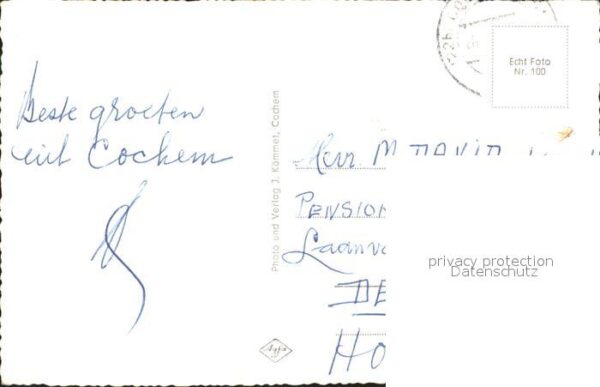 Beste groeten
uit Cochem
Photo und Verlag J. Kammet, Cochem
Agfa
Echt Foto
Nr. 100
Herr M
PENSION
Laanv
DE
HO
privacy protection
Datenschutz